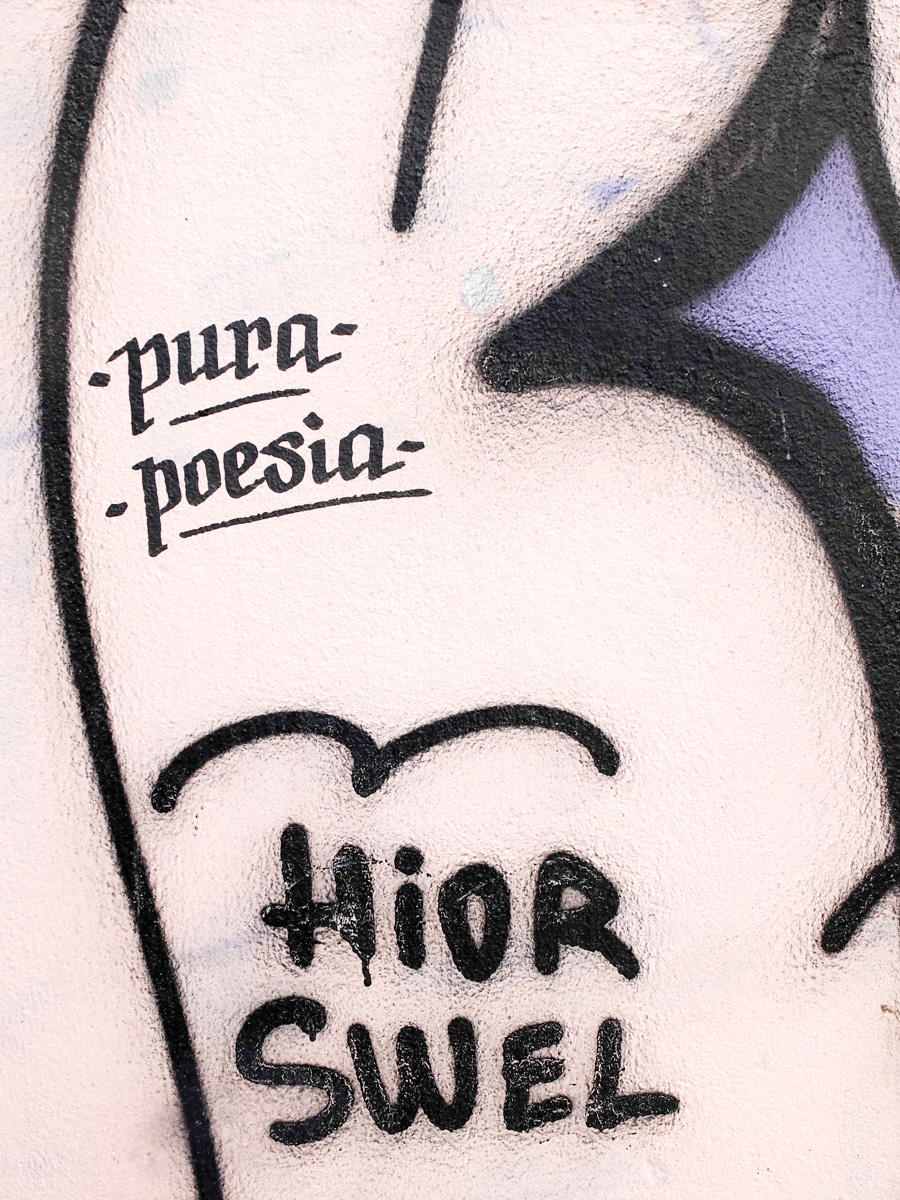 ·pura-
·poesia-
HiOR
SWEL